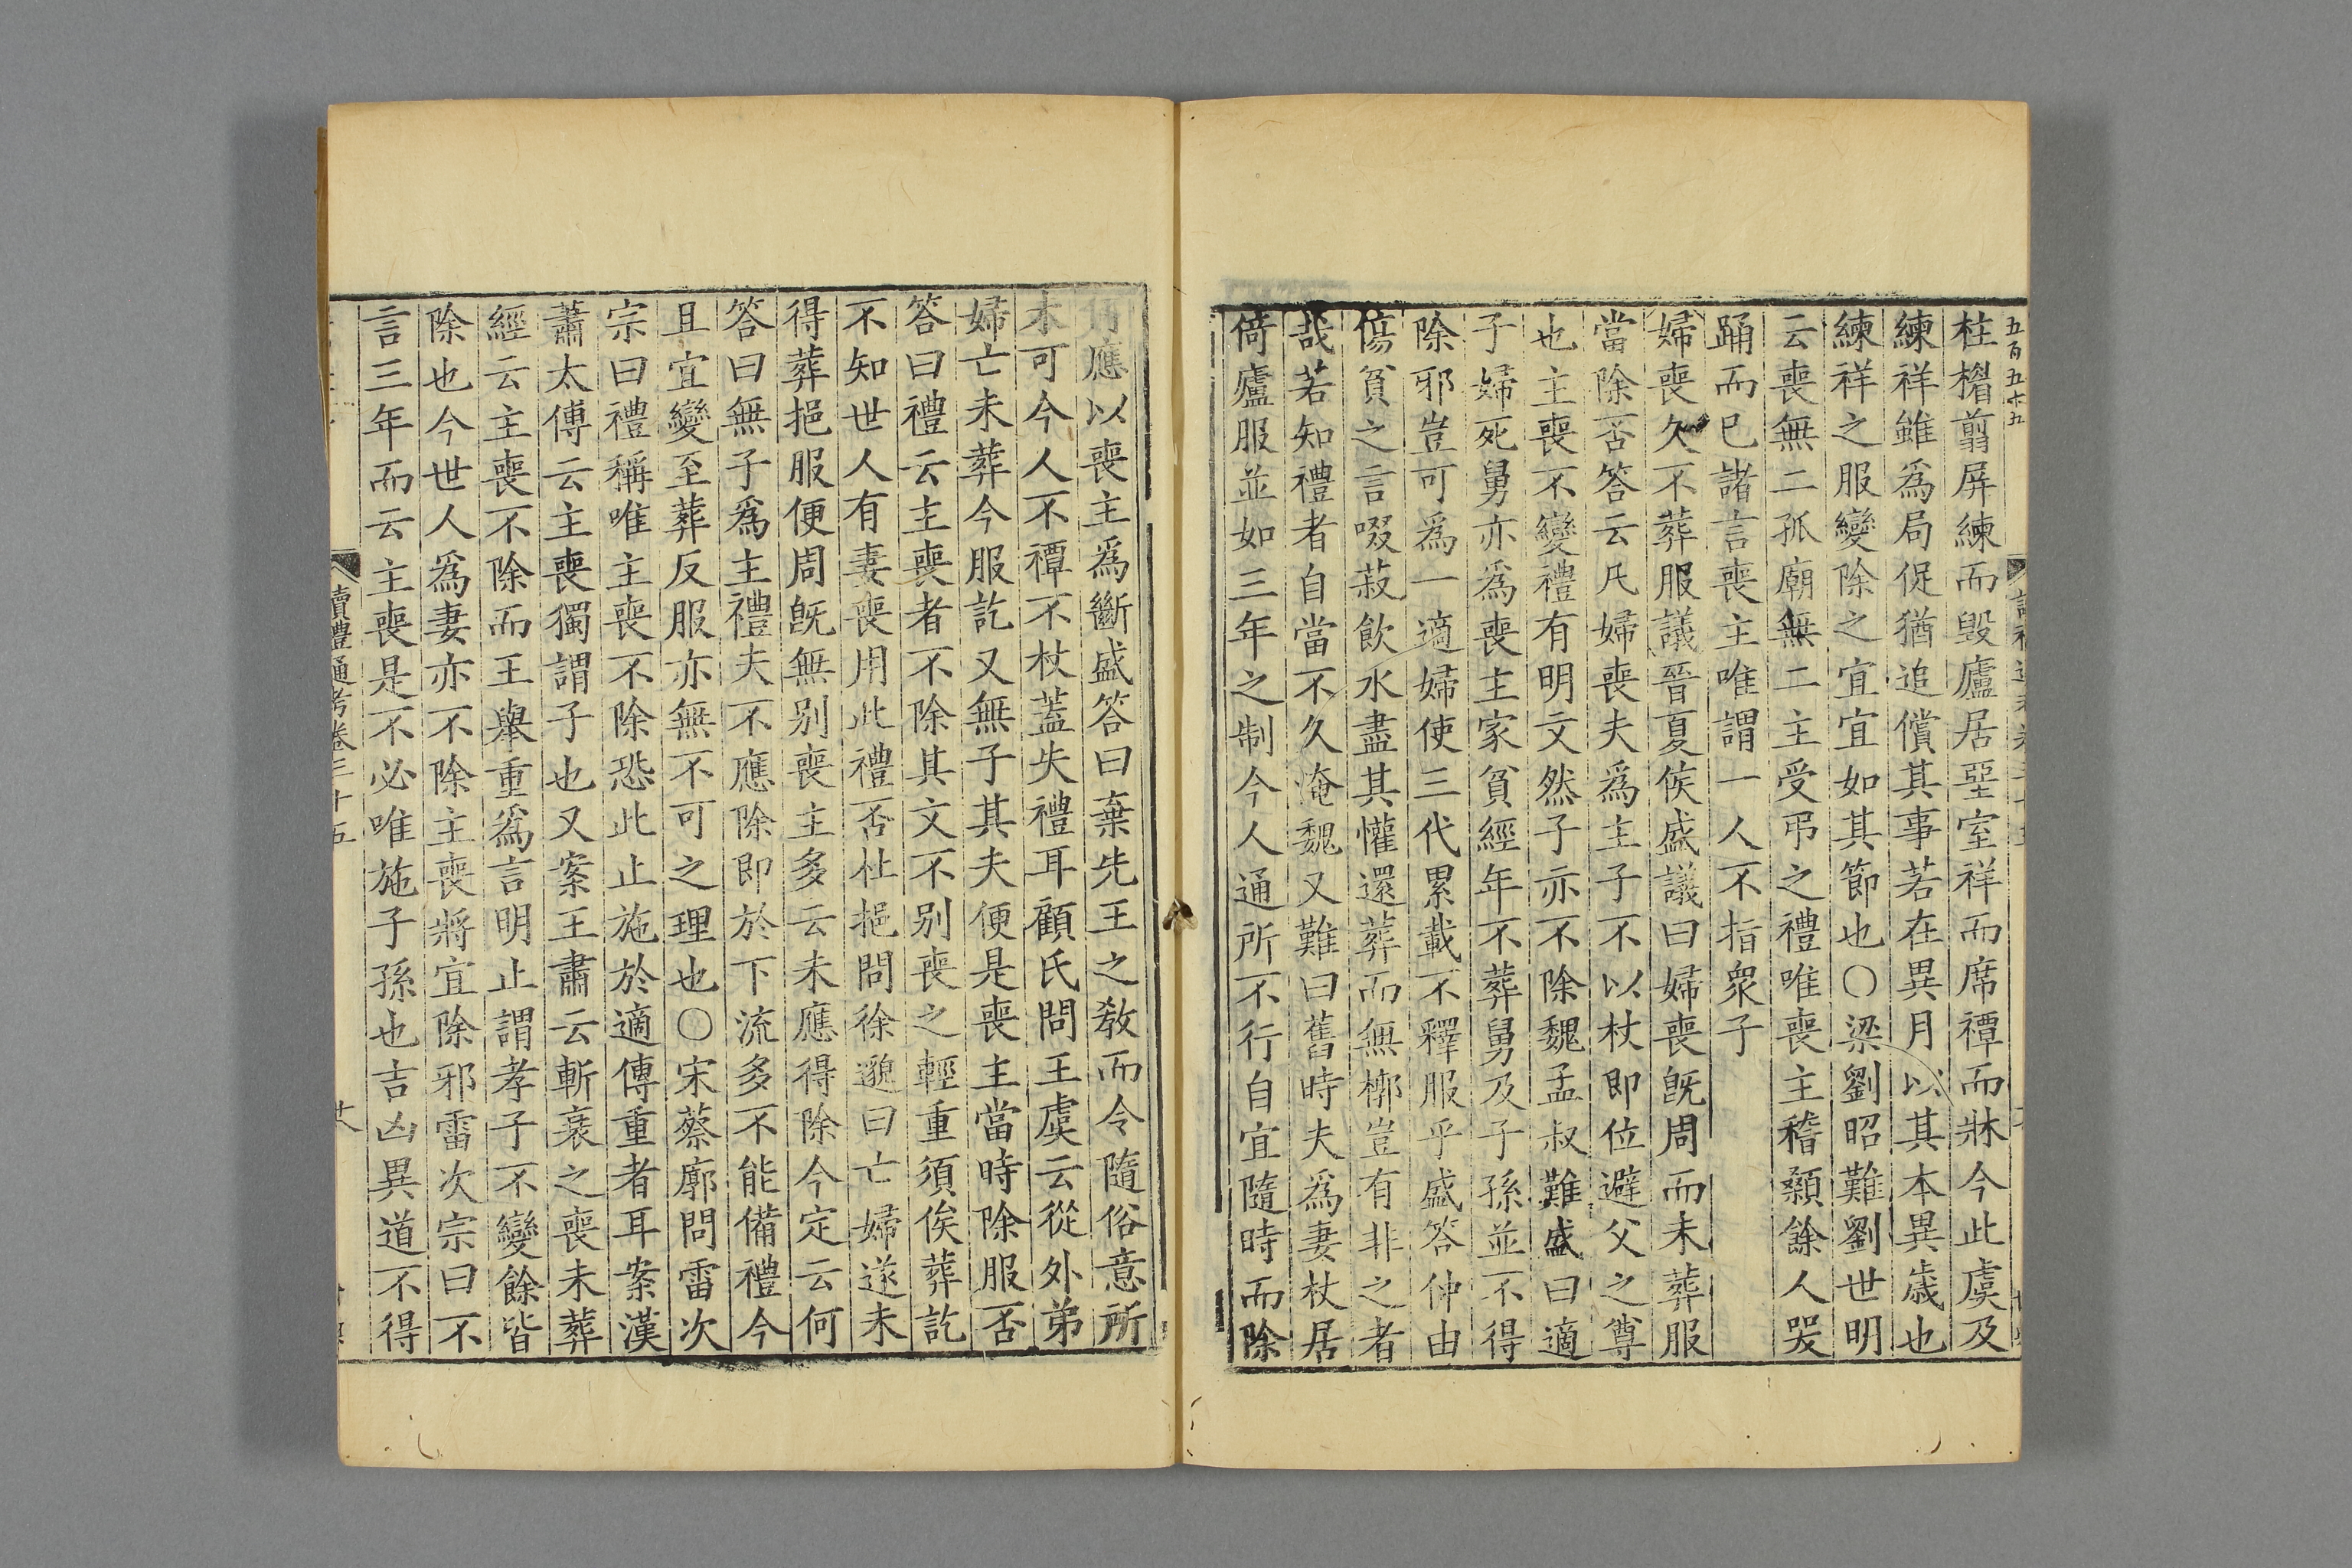 五百五十五
柱楣翦屏練而毀廬居堊室祥而席禫而牀今此虞及
練祥雖爲局促猶追償其事若在異月以其本異歲也
練祥之服變除之宜宜如其節也○梁劉昭難劉世明
云喪無二孤廟無二主受弔之禮唯喪主稽顙餘人哭
踊而已諸言喪主唯謂一人不指衆子
婦喪久不葬服議晉夏侯盛議曰婦喪旣周而未葬服
當除否答云凡婦喪夫爲主子不以杖即位避父之尊
也主喪不變禮有明文然子亦不除魏孟叔難盛曰適
子婦死舅亦爲喪主家貧經年不葬舅及子孫並不得
除邪豈可爲一適婦使三代累載不釋服乎盛答仲由
傷貧之言啜菽飲水盡其懽還葬而無槨豈有非之者
哉若知禮者自當不久淹魏又難曰舊時夫爲妻杖居
倚廬服並如三年之制今人通所不行自宜隨時而除
何應以喪主爲斷盛答曰棄先王之敎而令隨俗意所
未可今人不禫不杖蓋失禮耳顧氏問王虔云從外弟
婦亡未葬今服訖又無子其夫便是喪主當時除服否
答曰禮云主喪者不除其文不別喪之輕重須俟葬訖
不知世人有妻喪用此禮否杜挹問徐邈曰亡婦遂未
得葬挹服便周旣無别喪主多云未應得除今定云何
答曰無子爲主禮夫不應除即於下流多不能備禮今
且宜變至葬反服亦無不可之理也○宋蔡廓問雷次
宗曰禮稱唯主喪不除恐此止施於適傳重者耳案漢
蕭太傅云主喪獨謂子也又案王肅云斬衰之喪未葬
經云主喪不除而王舉重爲言明止謂孝子不變餘皆
除也今世人爲妻亦不除主喪將宜除邪雷次宗曰不
言三年而云主喪是不必唯施子孫也吉凶異道不得
讀禮通考卷三十五